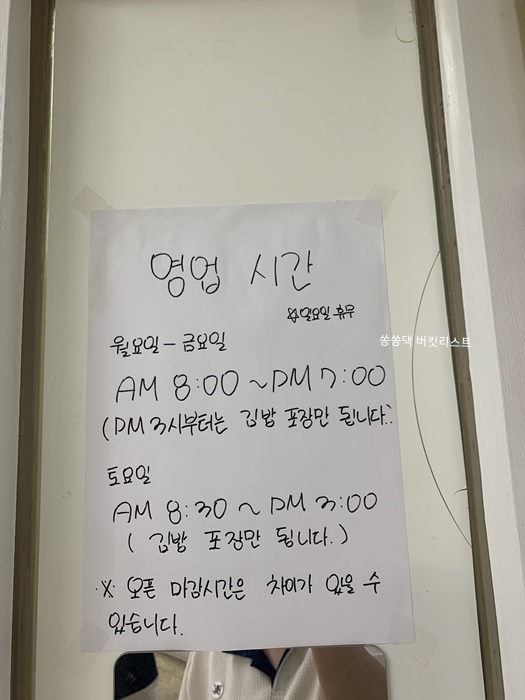 영업 시간
※일요일 휴무
월요일 - 금요일
쏭쏭댁 버킷리스트
AM 8:00 ~ PM 7:00
(PM 3시부터는 김밥 포장만 됩니다.)
토요일
AM 8:30 ~ PM 3:00
( 김밥 포장만 됩니다. )
※ 오픈 마감시간은 차이가 있을 수
있습니다.